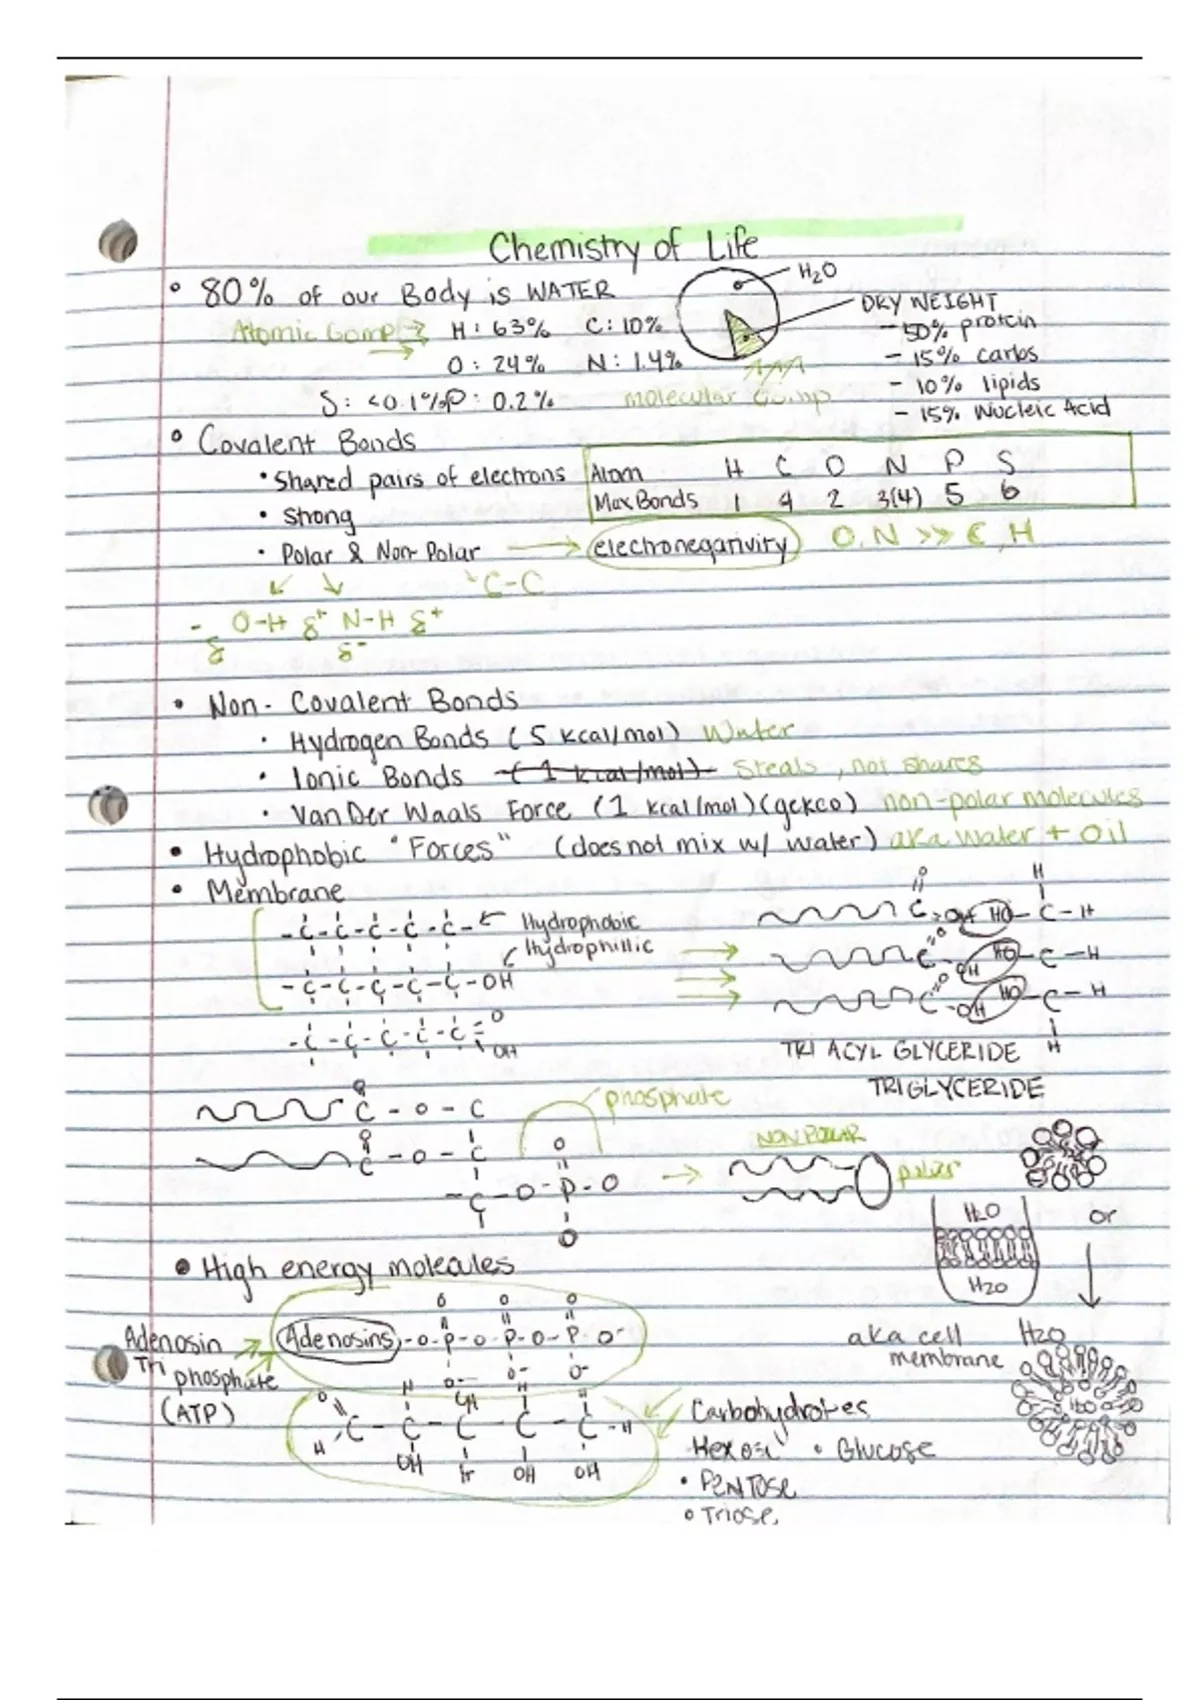 Chemistry of Life
• 80% of our Body is WATER
H₂O
DRY WEIGHT
- 50% protein
- 15% carbs
- 10% lipids
- 15% Nucleic Acid
Atomic Comp → H: 63% C: 10%
O: 24% N: 1.4%
S: <0.1% P: 0.2%
molecular Comp
• Covalent Bonds
• Shared pairs of electrons
• Strong
• Polar & Non-Polar → electronegativity O,N >> C,H
Atom H C O N P S
Max Bonds 1 4 2 3(4) 5 6
C-C
δ- O-H δ+ N-H δ+
δ-
• Non-Covalent Bonds
• Hydrogen Bonds (5 kcal/mol) Water
• Ionic Bonds (1 kcal/mol) Steals, not shares
• Van Der Waals Force (1 kcal/mol) (gekco) non-polar molecules
• Hydrophobic "Forces" (does not mix w/ water) aka water + oil
• Membrane
-C-C-C-C-C- ← Hydrophobic
Hydrophillic
-C-C-C-C-C-OH
-C-C-C-C-C=O
OH
O H
C-OH HO-C-H
O
C-OH HO-C-H
O
C-OH HO-C-H
H
TRI ACYL GLYCERIDE
TRIGLYCERIDE
O
C-O-C
O
C-O-C
-C-O-P-O
O
O
phosphate
→ NONPOLAR
polar
H₂O
H2O
or
aka cell
membrane
H2O
H2O
• High energy molecules
Adenosin
Tri phosphate
(ATP)
Adenosins -O-P-O-P-O-P-O-
O O O
O- O- O-
O H OH H H
C-C-C-C-C-H
H OH H OH OH
Carbohydrates
Hexose • Glucose
• PENTOSE
• Triose